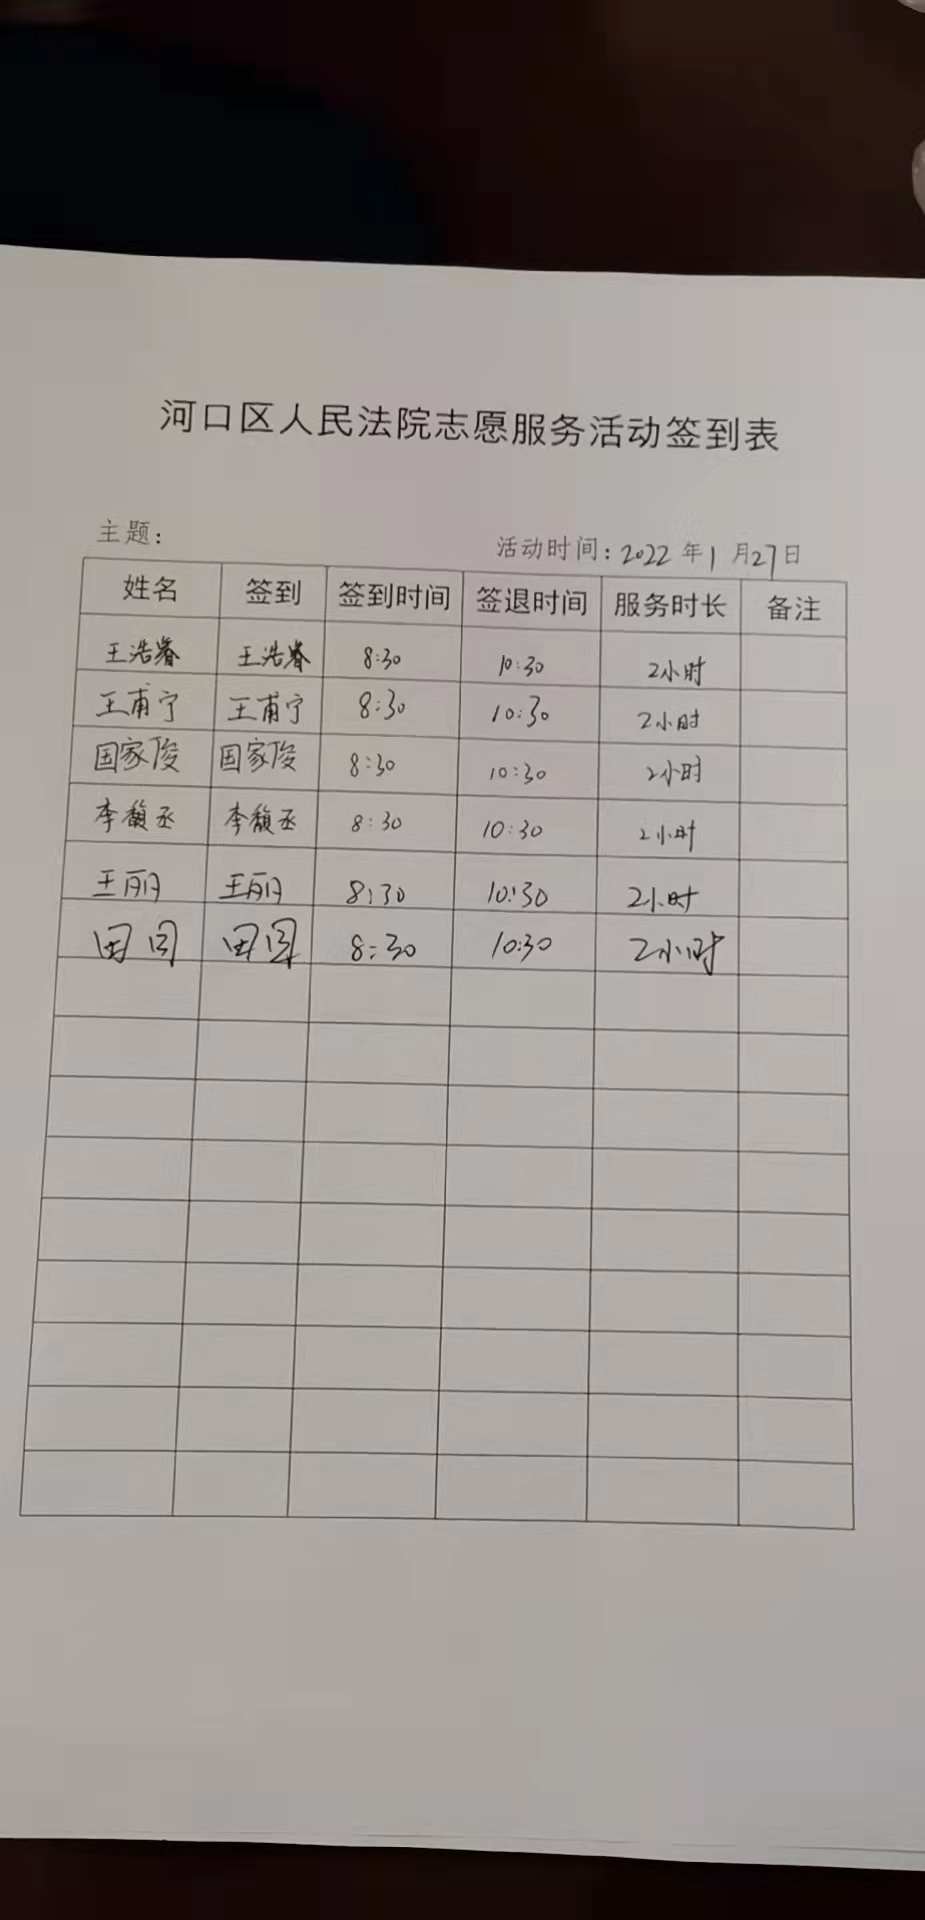 河口区人民法院志愿服务活动签到表
主题： 活动时间：2022年1月27日
姓名 签到 签到时间 签退时间 服务时长 备注
王浩睿 王浩睿 8:30 10:30 2小时
王甫宁 王甫宁 8:30 10:30 2小时
国家俊 国家俊 8:30 10:30 2小时
李馥丞 李馥丞 8:30 10:30 2小时
王丽 王丽 8:30 10:30 2小时
田 田 8:30 10:30 2小时